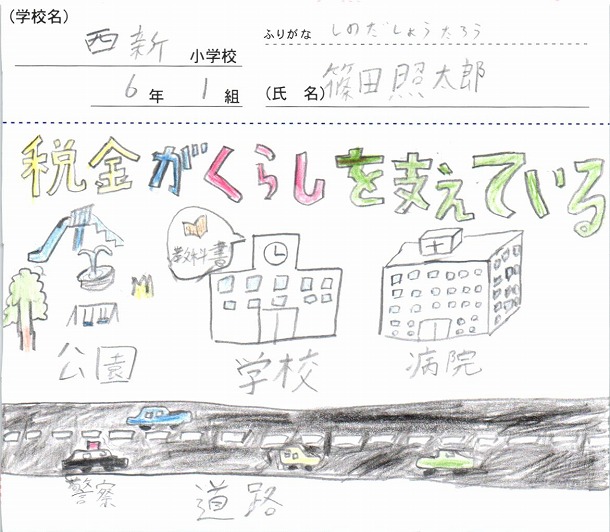 (学校名)
西新 小学校
6 年 1 組
ふりがな しのだ しょうたろう
(氏 名) 篠田照太郎
税金がくらしを支えている
教科書
公園
学校
病院
警察
道路